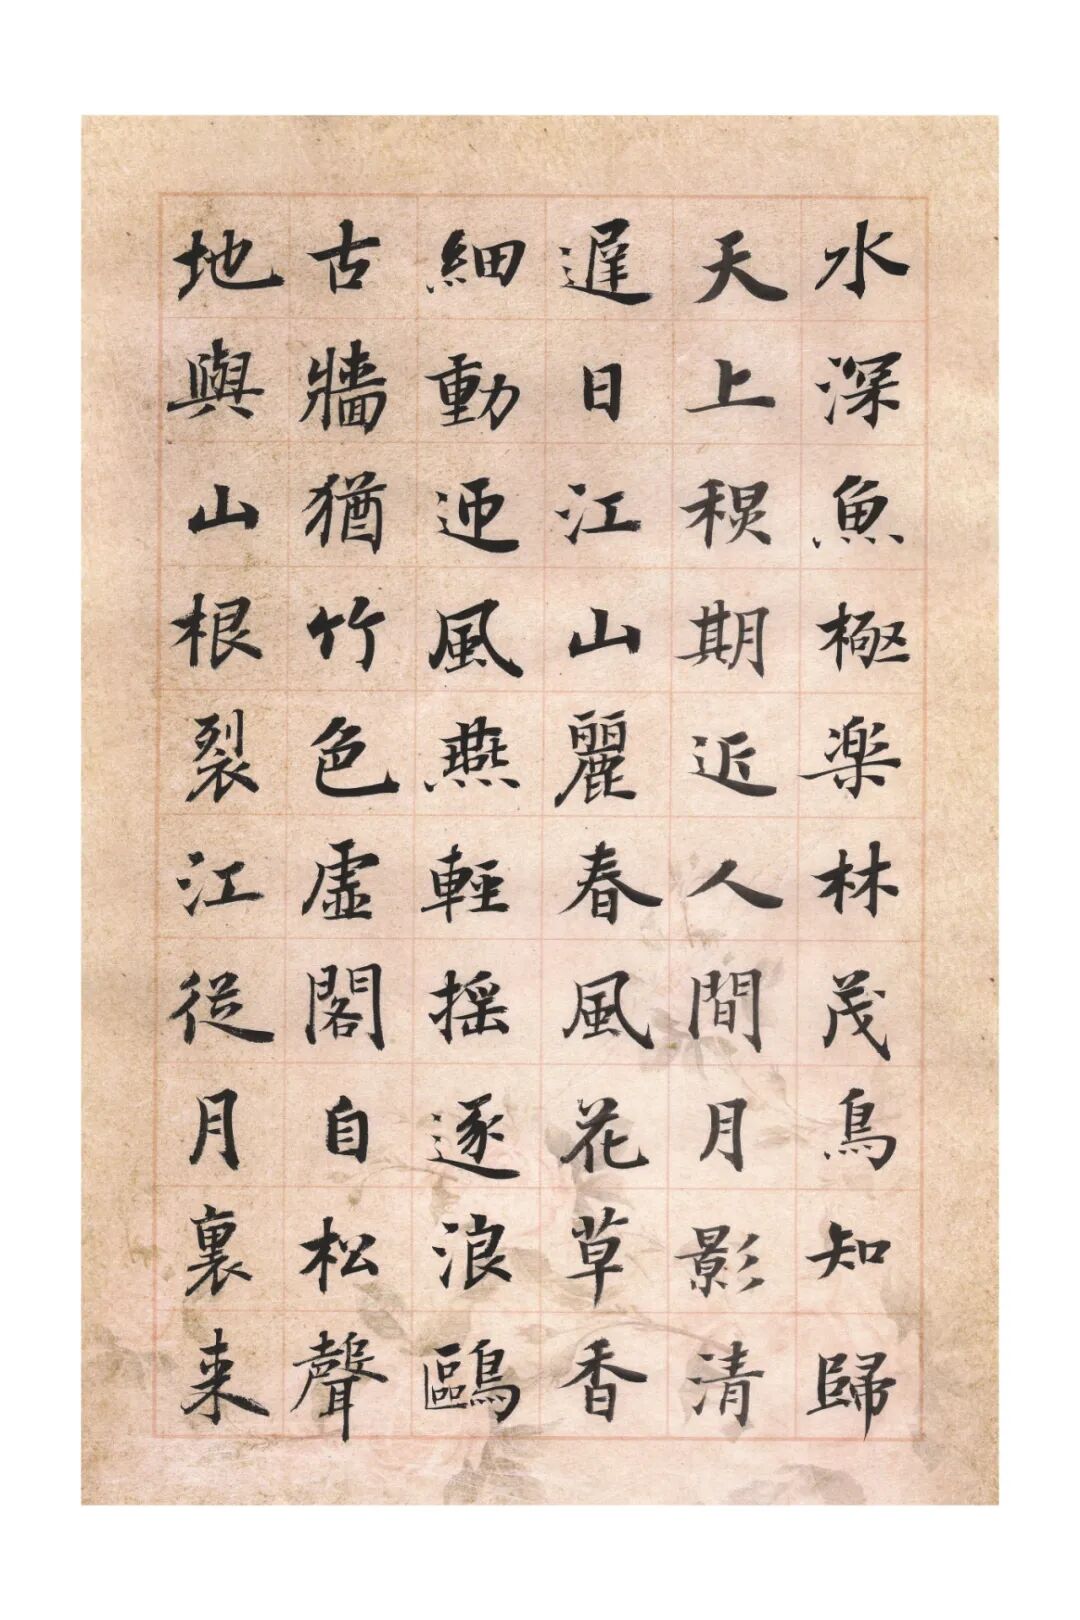 水深魚極楽林茂鳥知歸
天上秋期近人間月影清
遲日江山麗春風花草香
細動迎風燕輕揺逐浪鷗
古牆猶竹色虛閣自松聲
地與山根裂江従月裏来